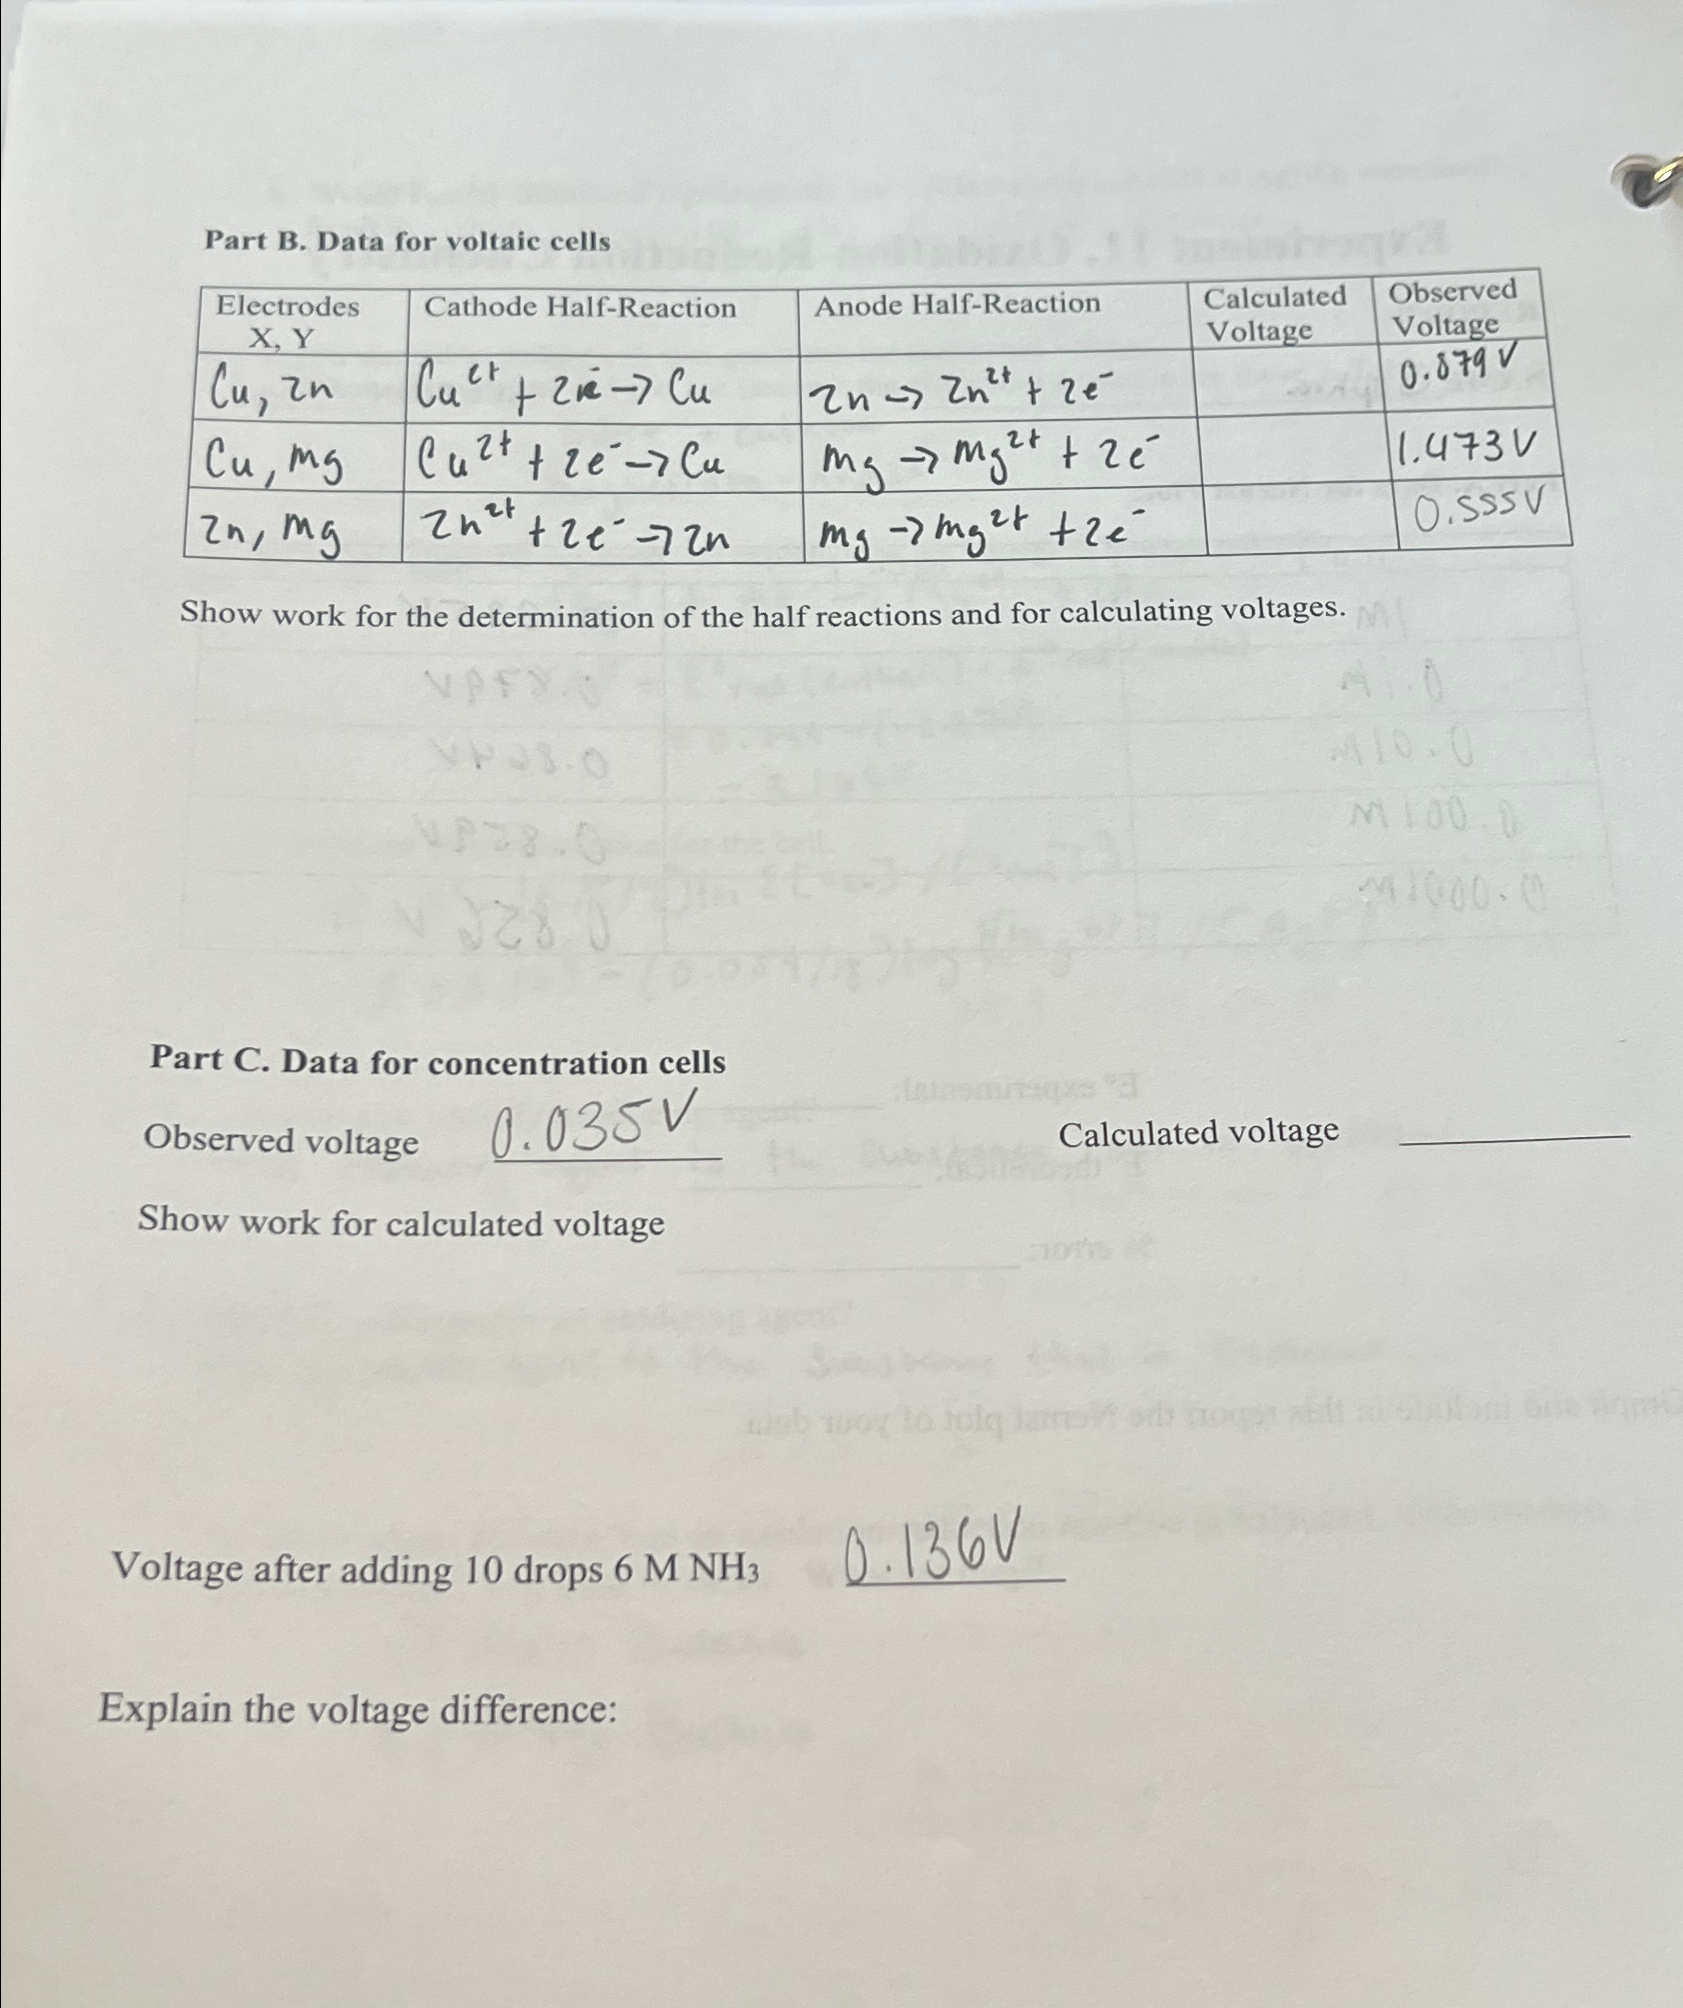 Part B. Data for voltaic cells
Electrodes X, Y | Cathode Half-Reaction | Anode Half-Reaction | Calculated Voltage | Observed Voltage
Cu, Zn | Cu²⁺ + 2e → Cu | Zn → Zn²⁺ + 2e⁻ | | 0.879 V
Cu, Mg | Cu²⁺ + 2e⁻ → Cu | Mg → Mg²⁺ + 2e⁻ | | 1.473 V
Zn, Mg | Zn²⁺ + 2e⁻ → Zn | Mg → Mg²⁺ + 2e⁻ | | 0.555V
Show work for the determination of the half reactions and for calculating voltages.
Part C. Data for concentration cells
Observed voltage 0.035V Calculated voltage
Show work for calculated voltage
Voltage after adding 10 drops 6 M NH₃ 0.136V
Explain the voltage difference: